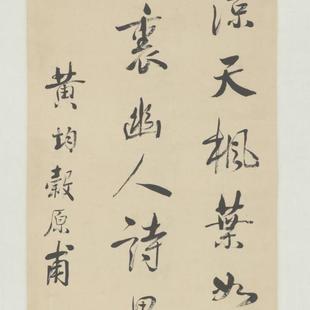 涼天楓葉如
裏幽人詩思
黃均穀原甫